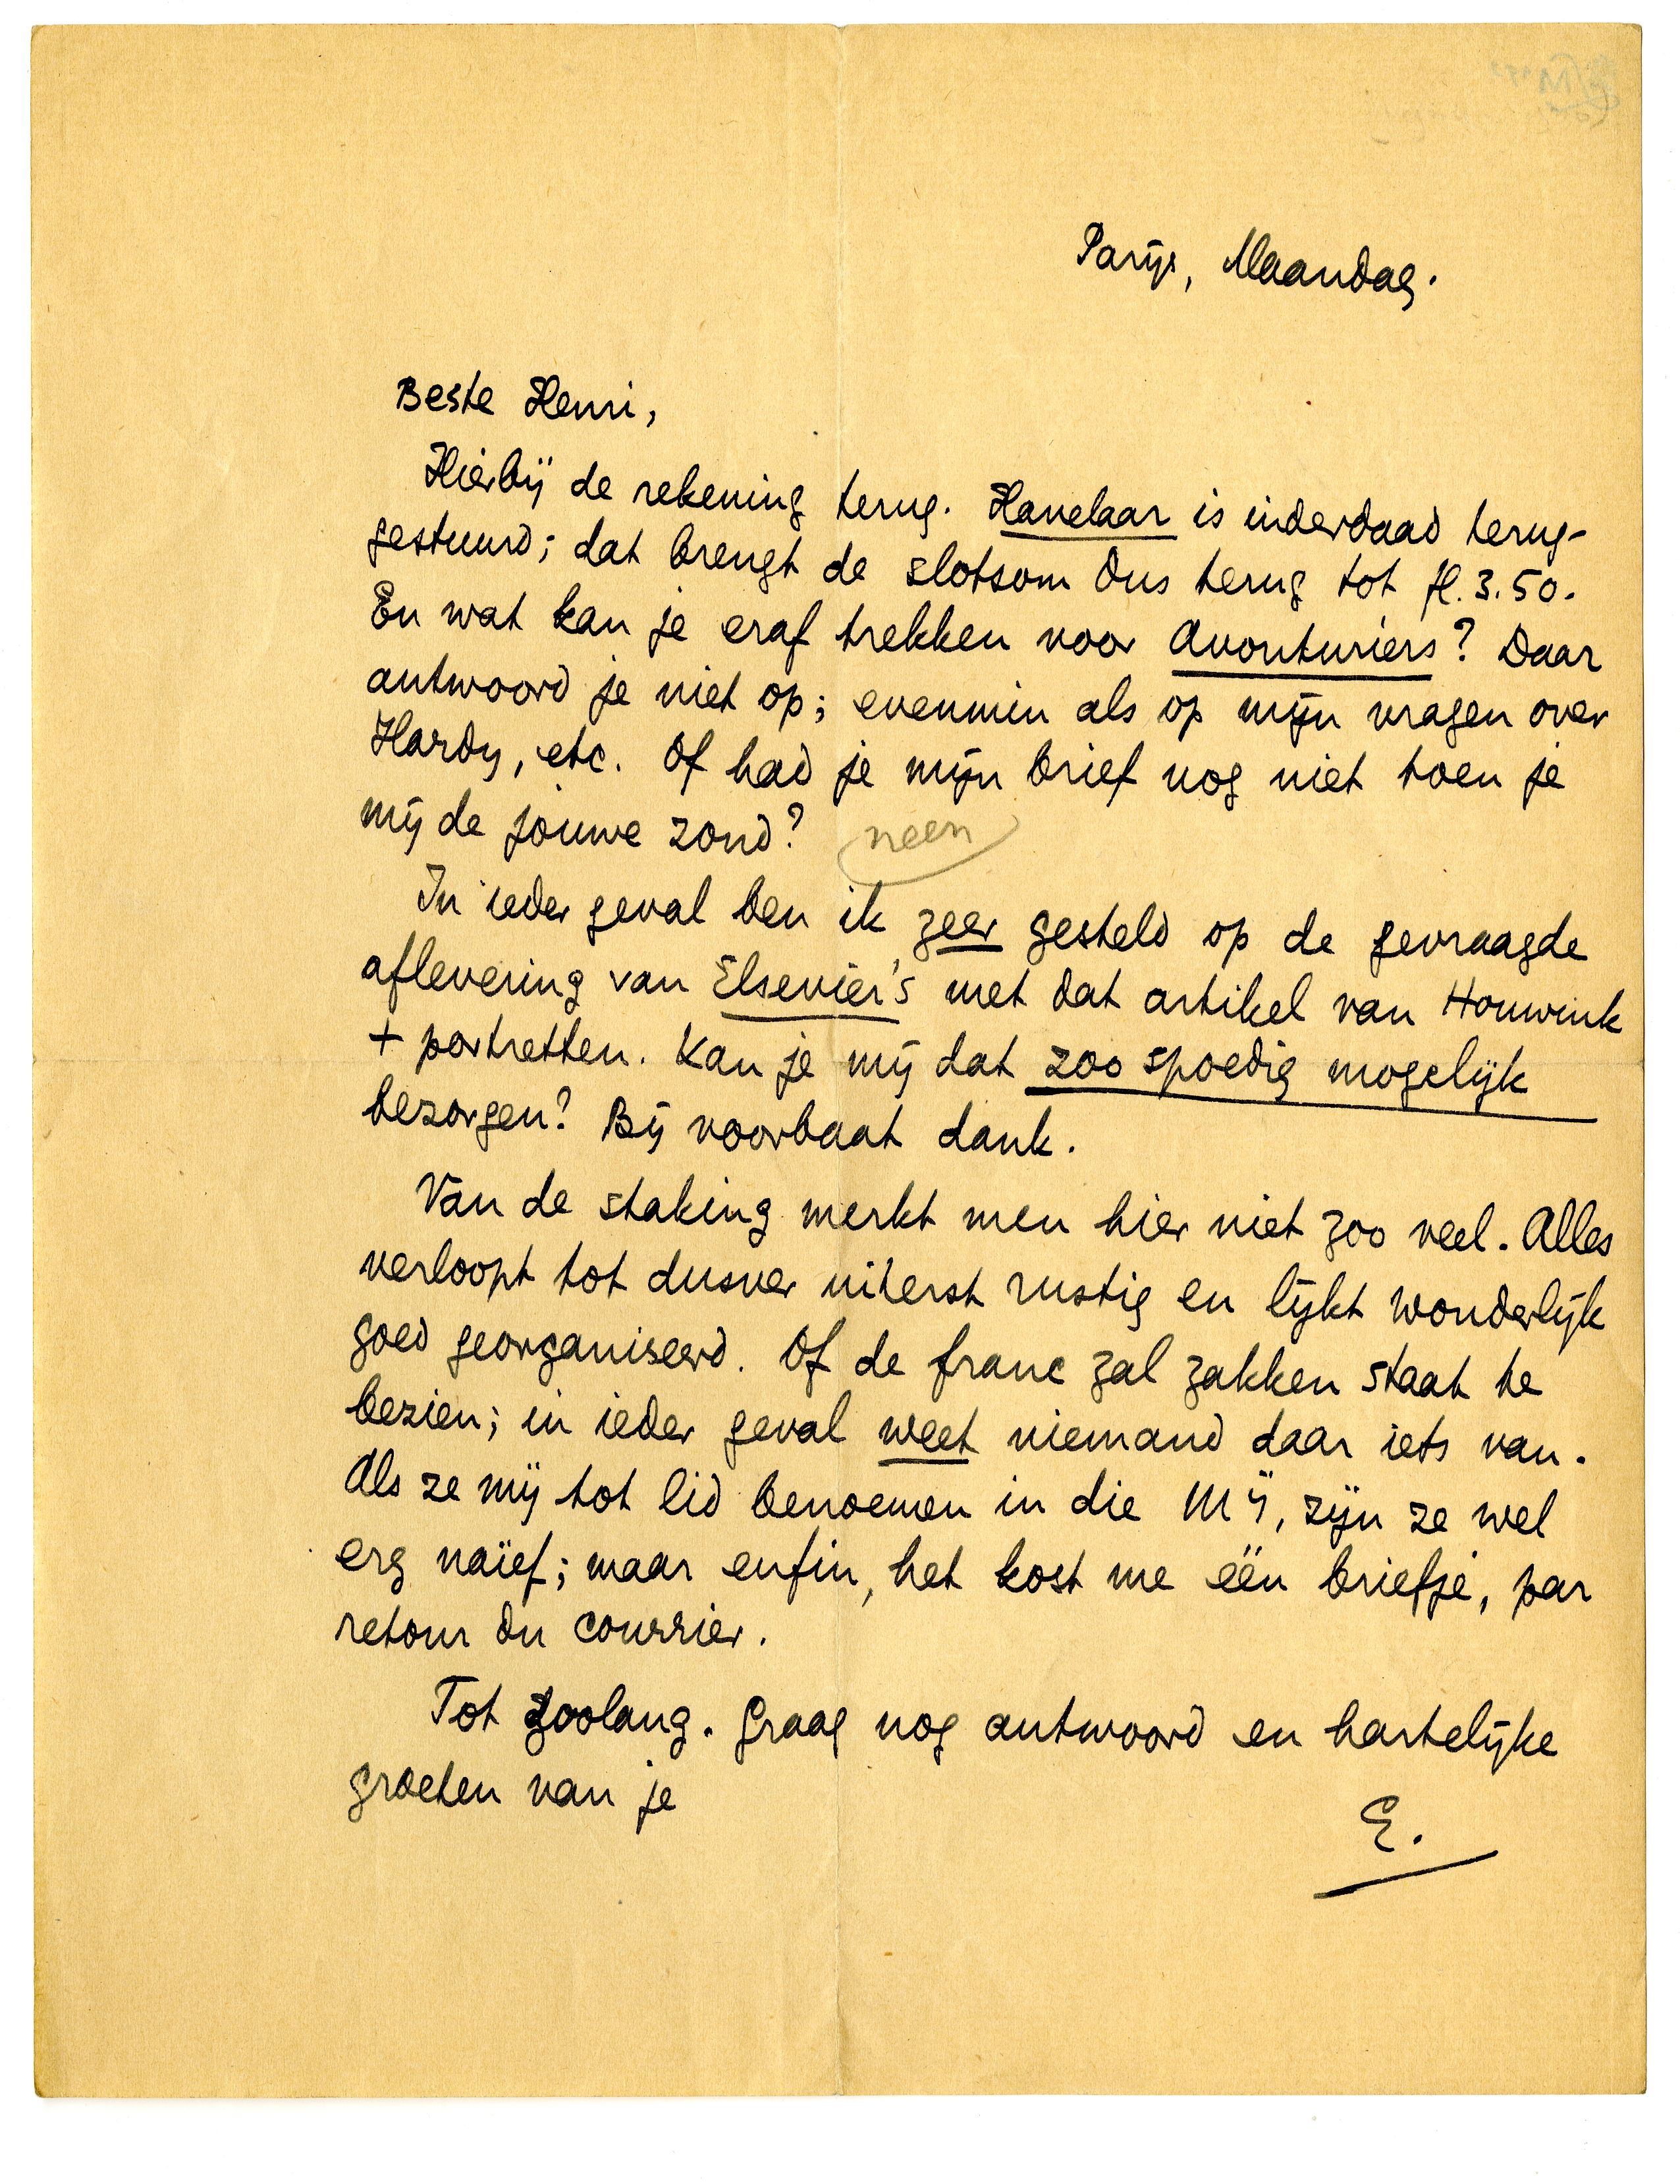 Parijs, Maandag.
Beste Henri,
Hierbij de rekening terug. Havelaar is inderdaad terug-
gestuurd; dat brengt de slotsom dus terug tot fl. 3.50.
En wat kan je eraf trekken voor Avonturiers? Daar
antwoord je niet op; evenmin als op mijn vragen over
Hardy, etc. Of had je mijn brief nog niet toen je
mij de jouwe zond? neen
In ieder geval ben ik zeer gesteld op de gevraagde
aflevering van Elsevier's met dat artikel van Houwink
+ portretten. Kan je mij dat zoo spoedig mogelijk
bezorgen? Bij voorbaat dank.
Van de staking merkt men hier niet zoo veel. Alles
verloopt tot dusver uiterst rustig en lijkt wonderlijk
goed georganiseerd. Of de franc zal zakken staat te
bezien; in ieder geval weet niemand daar iets van.
Als ze mij tot lid benoemen in die Mij, zijn ze wel
erg naïef; maar enfin, het kost me één briefje, par
retour du courrier.
Tot zoolang. Graag nog antwoord en hartelijke
groeten van je
E.